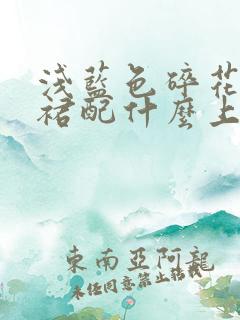 淺藍色碎花
裙配什麼上
東南亞阿龍
未任同意禁止轉載